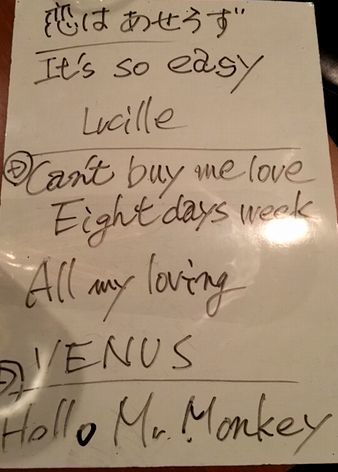 恋はあせらず
It's so easy
Lucille
Can't buy me love
Eight days week
All my loving
VENUS
Hello Mr. Monkey